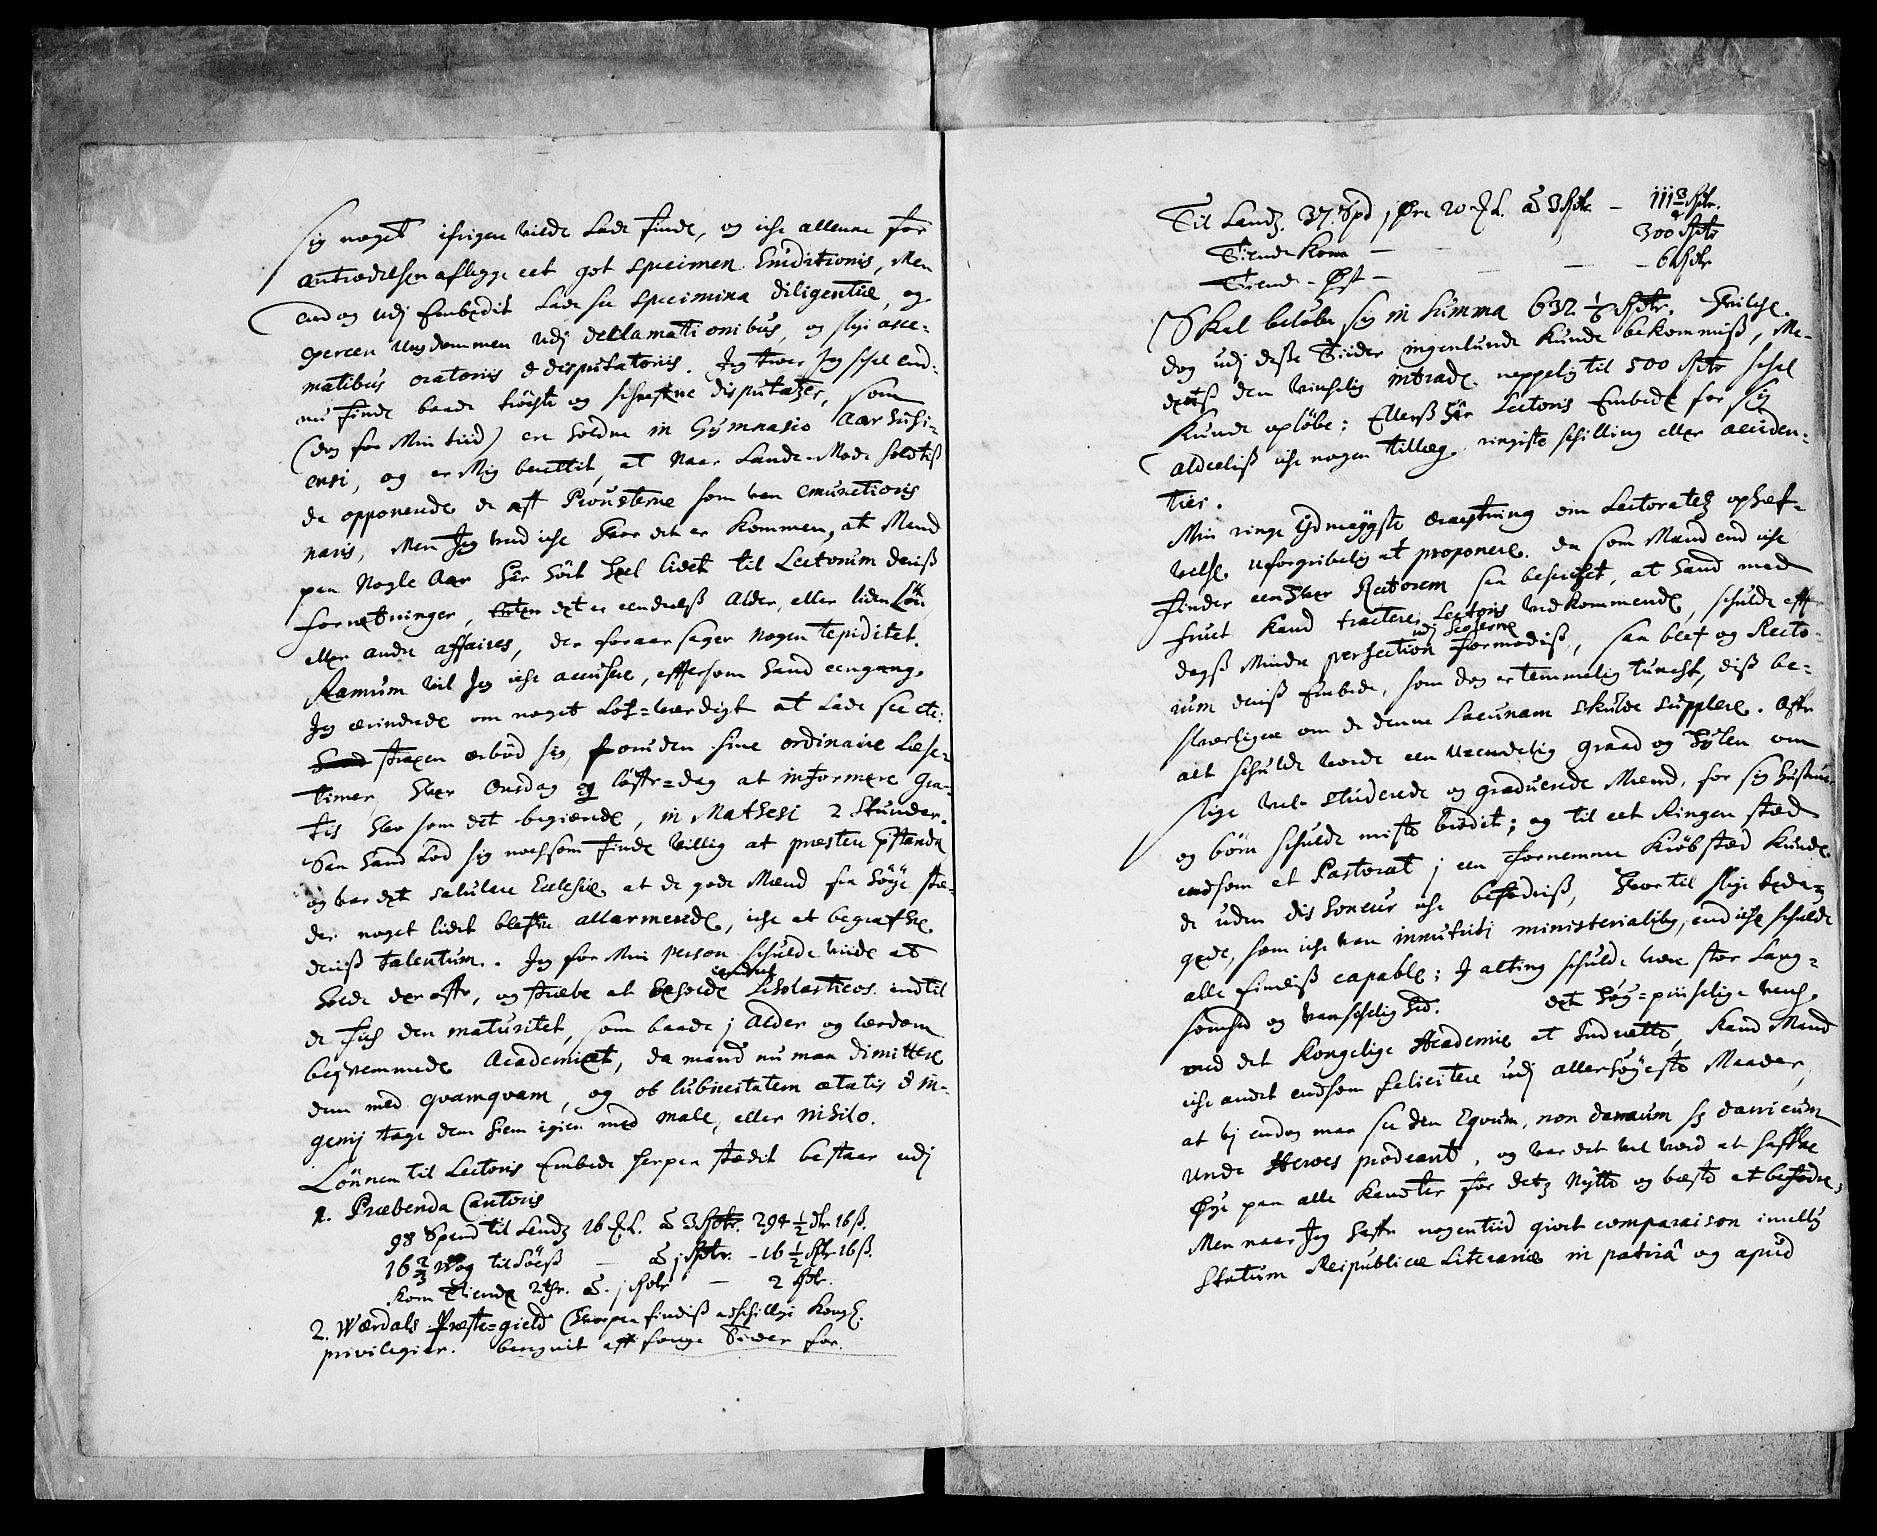 sig noget ifrigen vilde lade finde, og iche allenne for
antrædelsen aflegge eet got specimen Eruditionis, Men
end og udj Embedit lade see specimina diligentiæ, og
exercere Ungdommen udj declamationibus, og slige axio-
matibus oratoriis & disputatoriis. Jeg troer Jeg schal end-
nu finde baade trøchte og schrefne disputatzer, som
(dog for Min tiid) ere holdne in Gymnasio Aarhusi-
ensi, og er Mig berettit, at Naar Lande-Mode holdtiß
da opponerede de aff Prousterne som var emunctioris
naris, Men Jeg veed iche hvor det er kommen, at Mand
paa Nogle Aar har hört heel lidet til Lectorum deriß
forretninger, det er eendeelß Alder, eller liden Lön
eller andre affaires, der foraarsager nogen tepiditet.
Ramum vil Jeg iche accusere, effersom hand eengang
Jeg ærindrede om noget Lof-værdigt at lade see etc:
strax ærböd sig, foruden sine ordinaire Læse-
Timer, hver Onsdag og löffer-dag at informere gra-
tis hver som det begierede, in Mathesi 2 Stunder.
Saa hand lod sig nochsom finde villig at præstere
og var det salutare Ecclesiæ at de gode Mænd paa høye stæ-
der noget lidet bleffve allarmerede, iche at begrafve
deriß talentum. Jeg for Min Person schulde vide at
holde der offr, og stræbe at beholde Scholasticos indtil
de fich den maturitet, som baade j Alder og lærdom
beqvemmede Academiet, da mand nu maa dimittere
dem med qvamqvam, og ob lubricitatem ætatis & in-
genij tage dem hiem igien med male, eller nihilo.
Lönnen til Lectoris Embede herpaa stedit bestaar udj
1. Præbenda Cantoris
98 Spand til Landz 16 L. à 3 294 1/2 dr 16 ß.
16 2/3 Wog til Söeß — à j - 16 1/2 16 ß.
Korn Tiende 2 tr. à. j — 2
2. Wærdals Præste-gield (hvorpaa findiß adschillige Kongl.
privilegier. benaadit aff forrige Tiider for.
Til Landz. 37. Spd j Øre 20 L. à 3 — 111 3/4
Tiende Korn — 300
Tiende - Ost — 6
Skal belöbe sig in Summa 632 1/2 . hvilche
dog udj desse Tiider ingenlunde kunde bekommiß, Me-
deelß den virchelig intrade neppelig til 500 schal
kunde oplöbe; Ellerß har Lectoris Embede for sig
aldeeliß iche nogen tillæg ringiste schilling eller acciden-
tier.
Min ringe ydmygste eractning om Lectoratz ophæf-
velse uforgribelig at proponere. da som Mand end iche
finder een hver Rectorem saa beschichet, at hand med
fruct kand tractere Lectoris vedkommende, schulde effter
udj Scholerne
dagß Mindre perfection formodiß, saa blef og Recto-
rum deriß Embede, som dog er temmelig tungt, diß be-
sværligere om de denne Lacunam skulde supplere. Offr
alt schulde vorde een uendelig graad og hylen om
slige vel-studerede og graduerede Mænd, for sig hustruer
og börn schulde miste brödit; og til eet Ringen sted
endsom et Pastorat j een fornemme Kiöbsted kunde
de uden dishoneur iche befodriß, hvortil slige pæda-
goge, som iche var innutriti ministerialibus, end iche schulde
alle findiß capable; J alting schulde være stor lang-
somhed og vanschelighed. det höy-priselige verch
med det Kongelige Academie at Indrætte, kand Mand
iche andet endsom felicitere udj allerhöyeste Maader,
at vj endog maa see den Eqvum, non danaum sed danicum
unde Heroes prodeant, og var det vel værd at haffve
Øye paa alle kanter for detz Nytte og bæste at befodre;
Men naar Jeg haffr nogentiid giort comparaison imellem
Statum Reipublicæ Literariæ in patriâ og apud